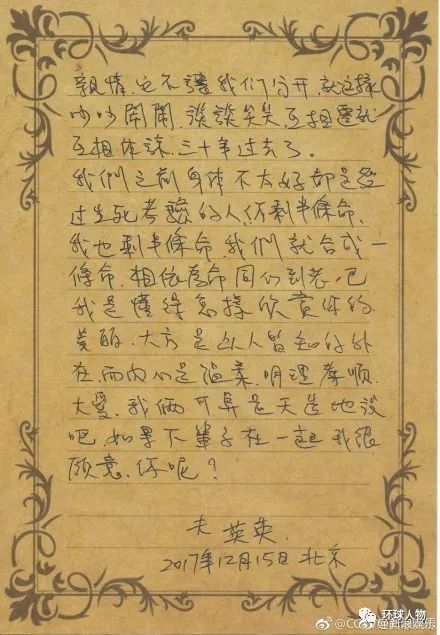 親情，它不讓我們分开，就这樣
吵吵鬧鬧，談談笑笑，互相遷就
互相体諒，三十年过去了。
我們之前身体不太好都是经
过生死考驗的人，你剩半條命，
我也剩半條命，我們就合成一
條命，相依为命同们到老吧
我是懂得怎樣欣賞你的
美丽、大方是人人皆知的外
在，而内心是温柔、明理孝順
大愛，我俩可算是天造地設
吧，如果下輩子在一起我很
願意，你呢？
夫 英英
2017年12月15日 北京
环球人物